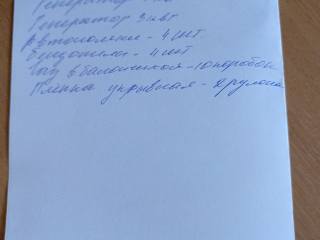 Генератор
Генератор 3 квт
Автополение - 4 шт
Бензопилы - 4 шт
Газ в балончиках - 10 коробок
Пленка укрывная - 2 рулона